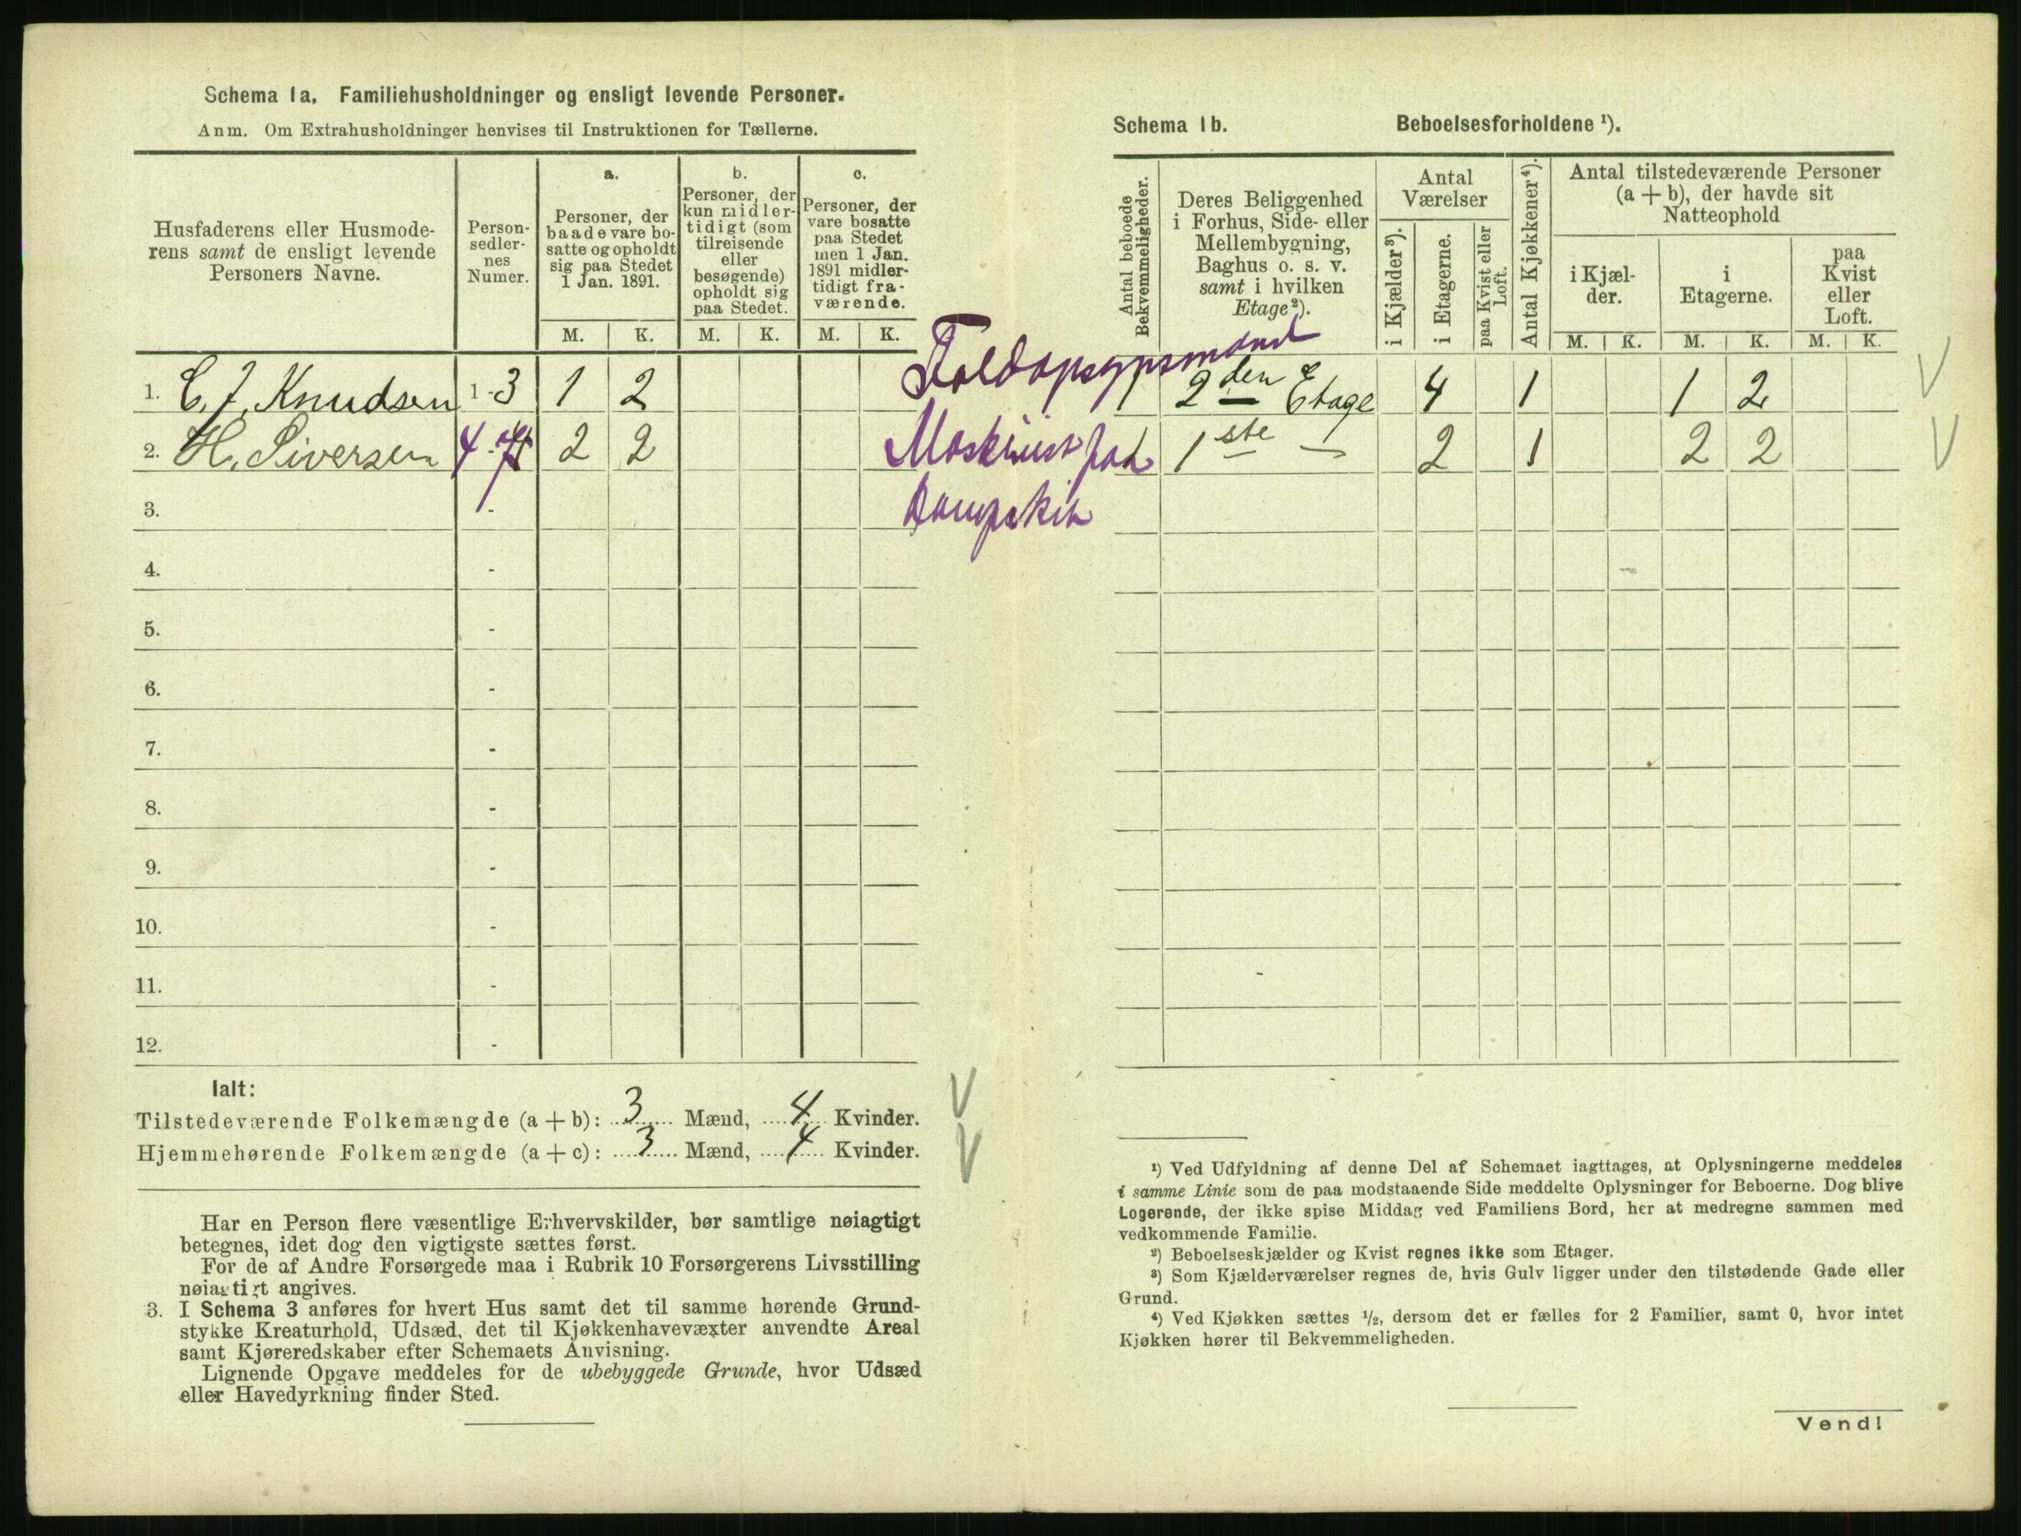 Schema 1a. Familiehusholdninger og ensligt levende Personer.
Anm. Om Extrahusholdninger henvises til Instruktionen for Tællerne.
Husfaderens eller Husmode-
rens samt de ensligt levende
Personers Navne.
Person-
sedler-
nes
Numer.
a.
Personer, der
baade vare bo-
satte og opholdt
sig paa Stedet
1 Jan. 1891.
b.
Personer, der
kun midler-
tidigt (som
tilreisende
eller
besøgende)
opholdt sig
paa Stedet.
c.
Personer, der
vare bosatte
paa Stedet
men 1 Jan.
1891 midler-
tidigt fra-
værende.
M. K. M. K. M. K.
1. C. J. Knudsen 1-3 1 2
2. H. Siversen 4-7 2 2
3. -
4. -
5. -
6. -
7. -
8. -
9. -
10. -
11. -
12. -
Ialt:
Tilstedeværende Folkemængde (a + b): 3 Mænd, 4 Kvinder.
Hjemmehørende Folkemængde (a + c): 3 Mænd, 4 Kvinder.
Har en Person flere væsentlige Erhvervskilder, bør samtlige nøiagtigt
betegnes, idet dog den vigtigste sættes først.
For de af Andre Forsørgede maa i Rubrik 10 Forsørgerens Livsstilling
nøiagtigt angives.
3. I Schema 3 anføres for hvert Hus samt det til samme hørende Grund-
stykke Kreaturhold, Udsæd, det til Kjøkkenhavevæxter anvendte Areal
samt Kjøreredskaber efter Schemaets Anvisning.
Lignende Opgave meddeles for de ubebyggede Grunde, hvor Udsæd
eller Havedyrkning finder Sted.
Schema 1b. Beboelsesforholdene ¹).
Antal beboede
Bekvemmeligheder.
Deres Beliggenhed
i Forhus, Side- eller
Mellembygning,
Baghus o. s. v.
samt i hvilken
Etage²).
Antal
Værelser
i Kjælder³).
i Etagerne.
paa Kvist eller
Loft.
Antal Kjøkkener⁴).
Antal tilstedeværende Personer
(a + b), der havde sit
Natteophold
i Kjæl-
der.
i
Etagerne.
paa
Kvist
eller
Loft.
M. K. M. K. M. K.
Toldopsynsmand
1 2den Etage 4 1 1 2
Maskinist paa
1 1ste — 2 1 2 2
Dampskib
¹) Ved Udfyldning af denne Del af Schemaet iagttages, at Oplysningerne meddeles
i samme Linie som de paa modstaaende Side meddelte Oplysninger for Beboerne. Dog blive
Logerende, der ikke spise Middag ved Familiens Bord, her at medregne sammen med
vedkommende Familie.
²) Beboelseskjælder og Kvist regnes ikke som Etager.
³) Som Kjælderværelser regnes de, hvis Gulv ligger under den tilstødende Gade eller
Grund.
⁴) Ved Kjøkken sættes ½, dersom det er fælles for 2 Familier, samt 0, hvor intet
Kjøkken hører til Bekvemmeligheden.
Vend!